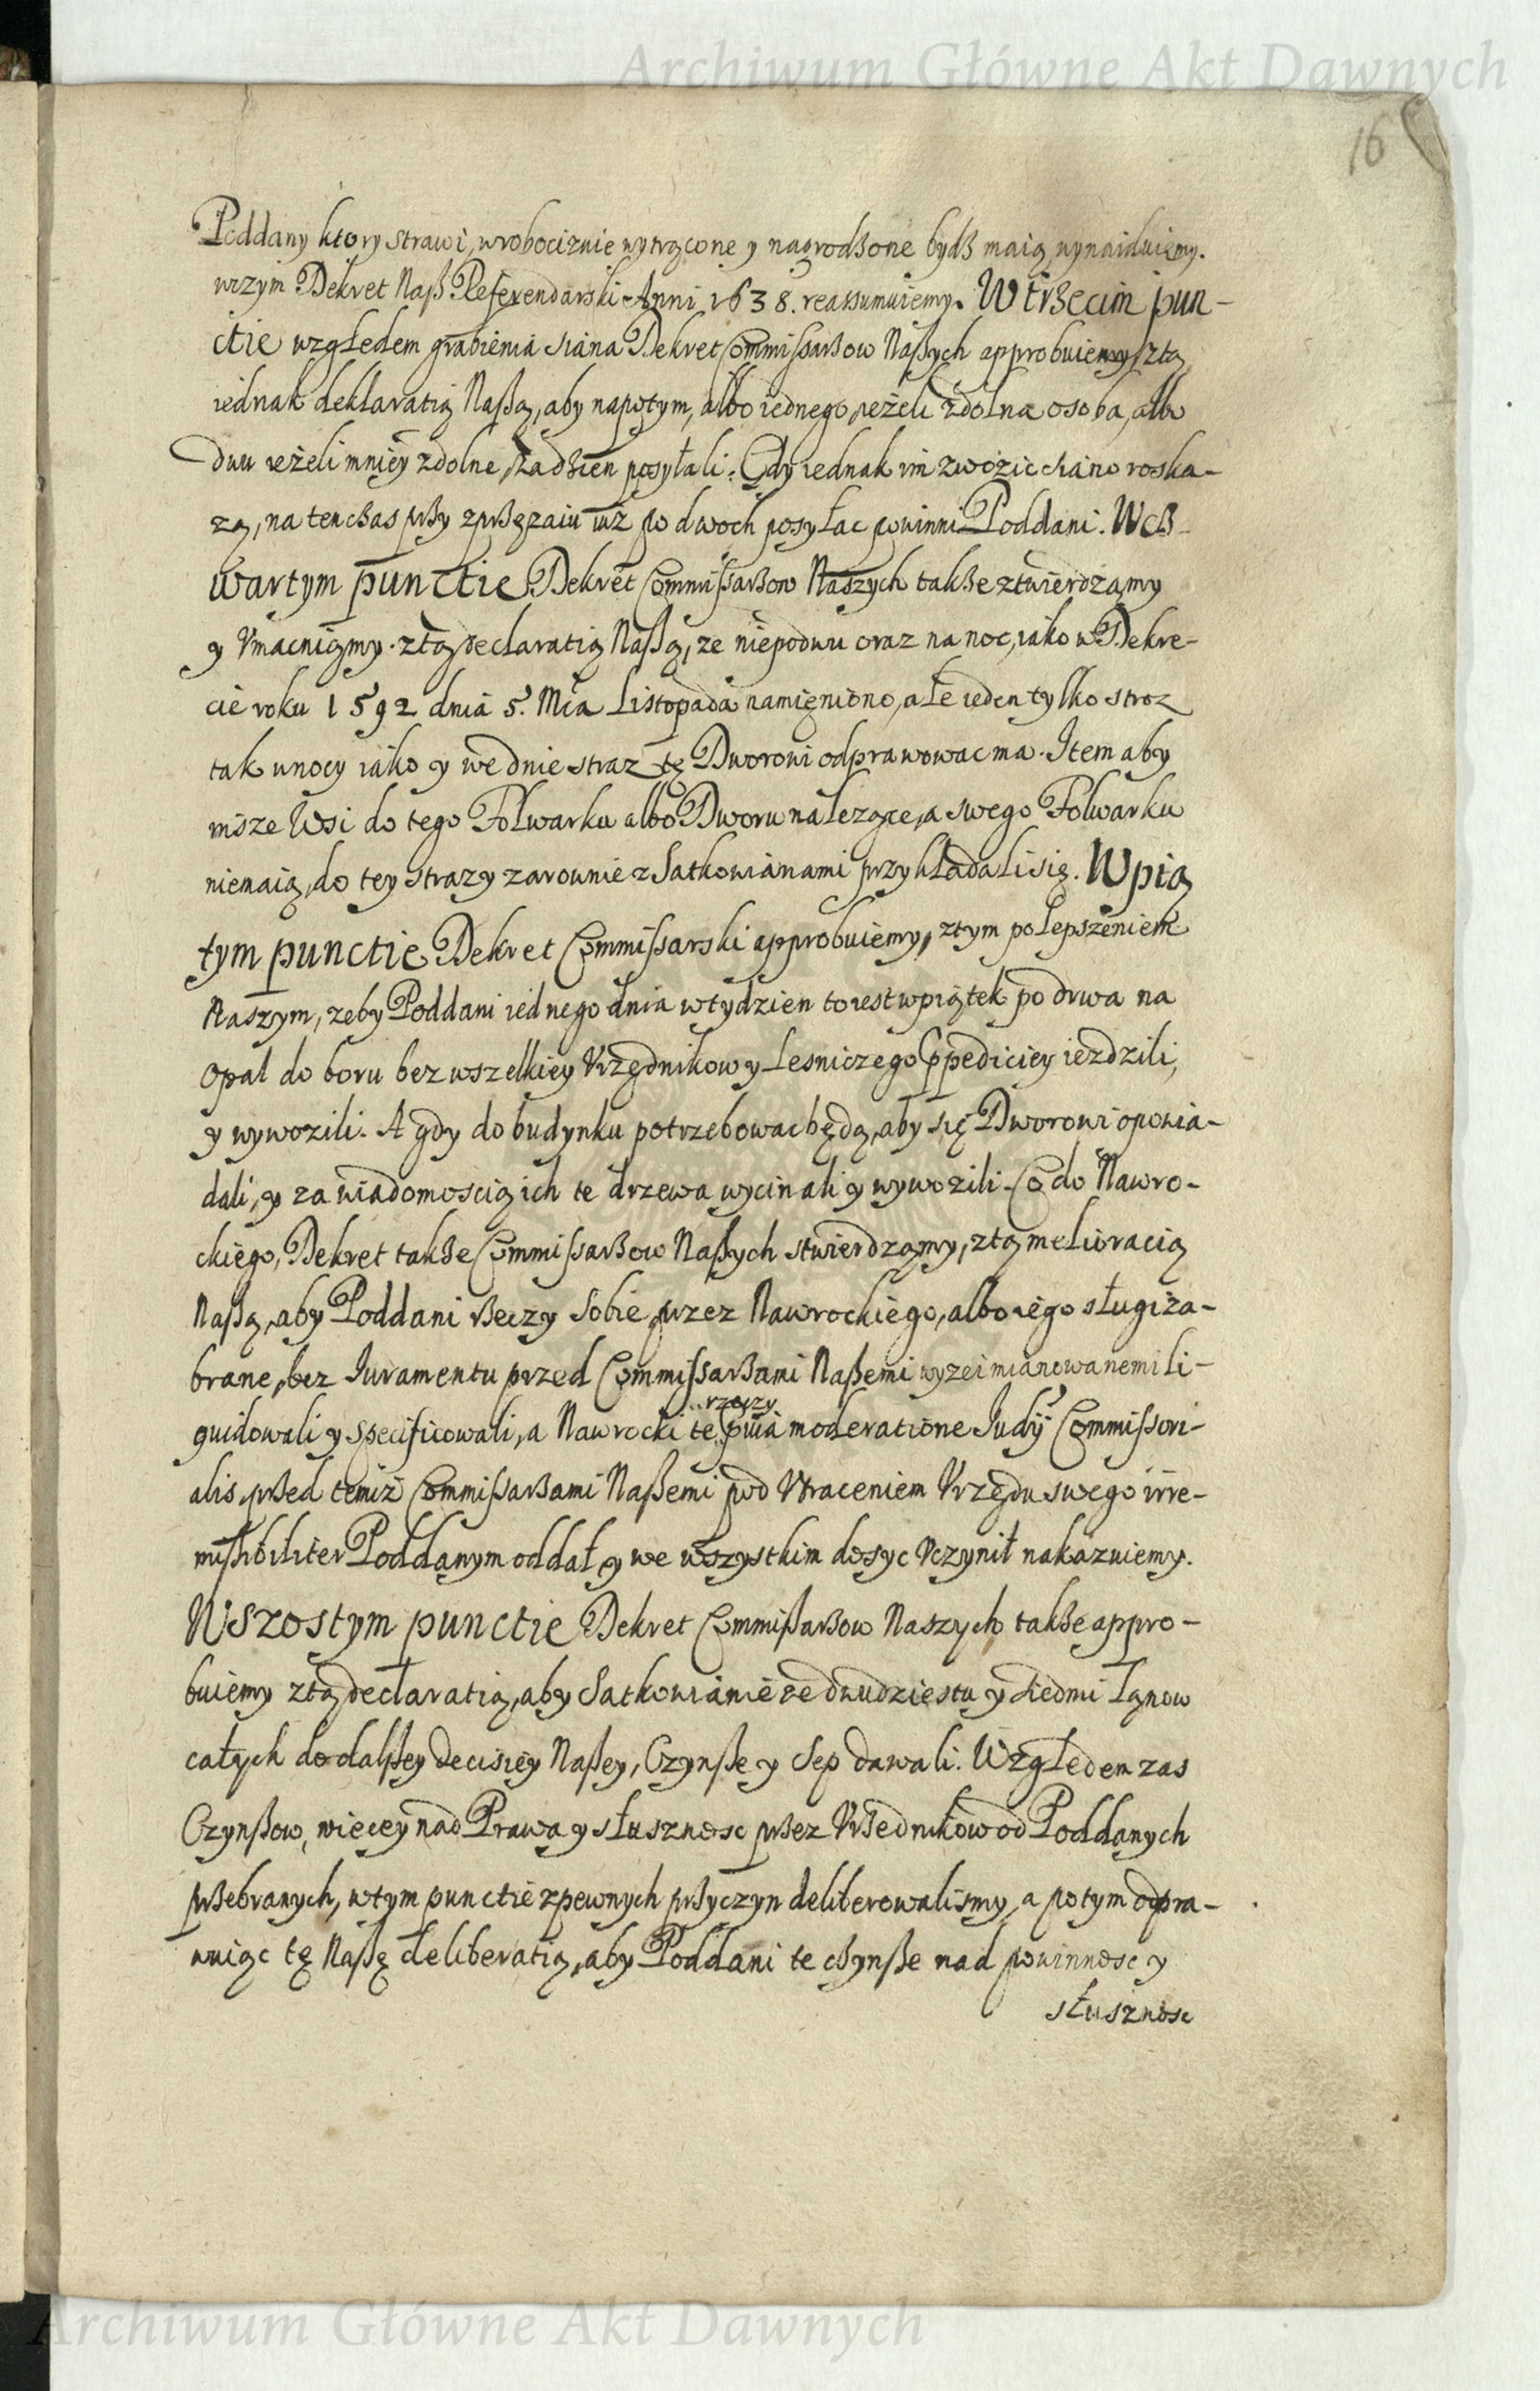 Archiwum Główne Akt Dawnych
16
Poddany ktory strawi, w robociznie wytrącone y nagrodzone bydz maią wynaiduiemy.
wczym Dekret Nasz Referendarski Anni 1638. reassumuiemy. W trzecim pun-
ctie względem grabienia siana Dekret Commissarzow Naszych approbuiemy, z tą
iednak deklaratią Naszą, aby napotym, albo iednego, ieżeli zdolna osoba, albo
dwu ieżeli mnięy zdolne, na dzien posyłali. Gdy iednak im zwozic siano roska-
zą, na ten czas przy zprzęzaiu iuż po dwoch posyłac powinni Poddani. W cz-
wartym punctie Dekret Commissarzow Naszych takze ztwierdzamy
y Vmacniamy. z tą declaratią Naszą, ze nie po dwu oraz na noc, iako w Dekre-
cie roku 1592 dnia 5. Mca Listopada namięniono, ale ieden tylko stroz
tak w nocy iako y we dnie straz tę Dworowi odprawowac ma. Item aby
insze Wsi do tego Folwarku albo Dworu nalezące, a swego Folwarku
niemaią, do tey strazy zarownie z Satkowianami przykładali się. W pią
tym punctie Dekret Commissarski approbuiemy, z tym polepszeniem
Naszym, zeby Poddani iednego dnia w tydzien to iest w piątek po drwa na
opał do boru bez wszelkiey Vrzędnikow y Lesniczego ppediciey iezdzili,
y wywozili. A gdy do budynku potrzebowac będą, aby się Dworowi opowia-
dali, y za wiadomoscią ich te drzewa wycinali y wywozili. Co do Nawro-
ckiego, Dekret takze Commissarzow Naszych stwierdzamy, z tą melioracią
Naszą, aby Poddani rzeczy sobie, przez Nawrockiego, albo iego sługi za-
brane, bez Iuramentu przed Commissarzami Naszemi wyzei mianowanemi li-
quidowali y specificowali, a Nawrocki te
rzeczy
pvia moderatione Iudÿ Commissori-
alis, przed temiż Commissarzami Naszemi pod Vtraceniem Vrzędu swego irre-
missibiliter Poddanym oddał, y we wszystkim dosyc Vczynił nakazuiemy.
W szostym punctie Dekret Commiszarzow Naszych takze appro-
buiemy z tą declaratią, aby Satkowianie ze dwudziestu y siedmi Łanow
całych do dalszey decisiey Naszey, Czynsze y Sep dawali. Względem zas
Czynszow, więcey nad Prawa y słusznosc przez Vrzednikow od Poddanych
przebranych, w tym punctie z pewnych przyczyn deliberowalismy, a potym odpra-
wuiąc tę Naszę deliberatią, aby Poddani te czynsze nad powinnosc y
słusznosc
Archiwum Główne Akt Dawnych